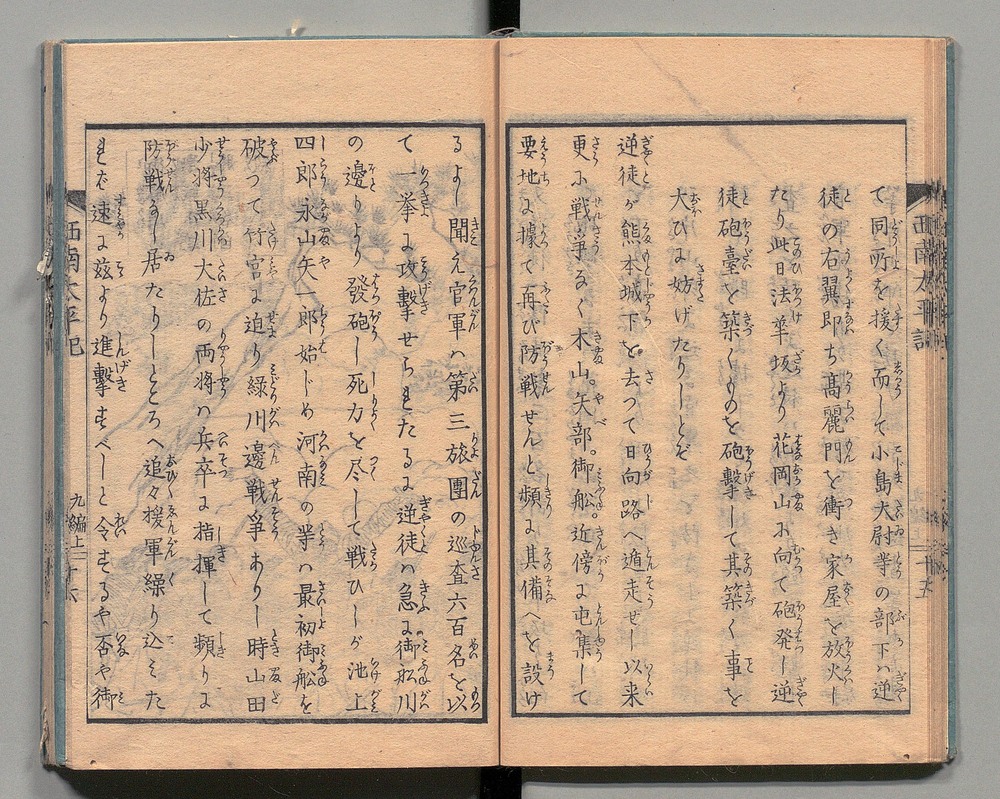 て同所を援く而して小島大尉等の部下ハ逆
徒の右翼即ち高麗門を衝き家屋を放火し
たり此日法華坂より花岡山に向て砲発し逆
徒砲臺を築くものを砲撃して其築く事を
大ひに妨げたりしとぞ
逆徒ガ熊本城下を去つて日向路へ遁走せし以来
更に戦爭なく木山。矢部。御舩近傍に屯集して
要地に據て再び防戦せんと頻に其備へを設け
るよし聞え官軍ハ第三旅團の巡査六百名を以
て一挙に攻撃せられたるに逆徒ハ急に御舩川
の邊りより發砲し死力を尽して戦ひしが池上
四郎永山矢一郎始じめ河南の等ハ最初御舩を
破つて竹宮に迫り緑川邊戦爭ありし時山田
少将黒川大佐の両将ハ兵卒に指揮して頻りに
防戦なし居たりしところへ追々援軍繰り込ミた
れバ速に茲より進撃すべしと令するや否や御
西南太平記
九編上